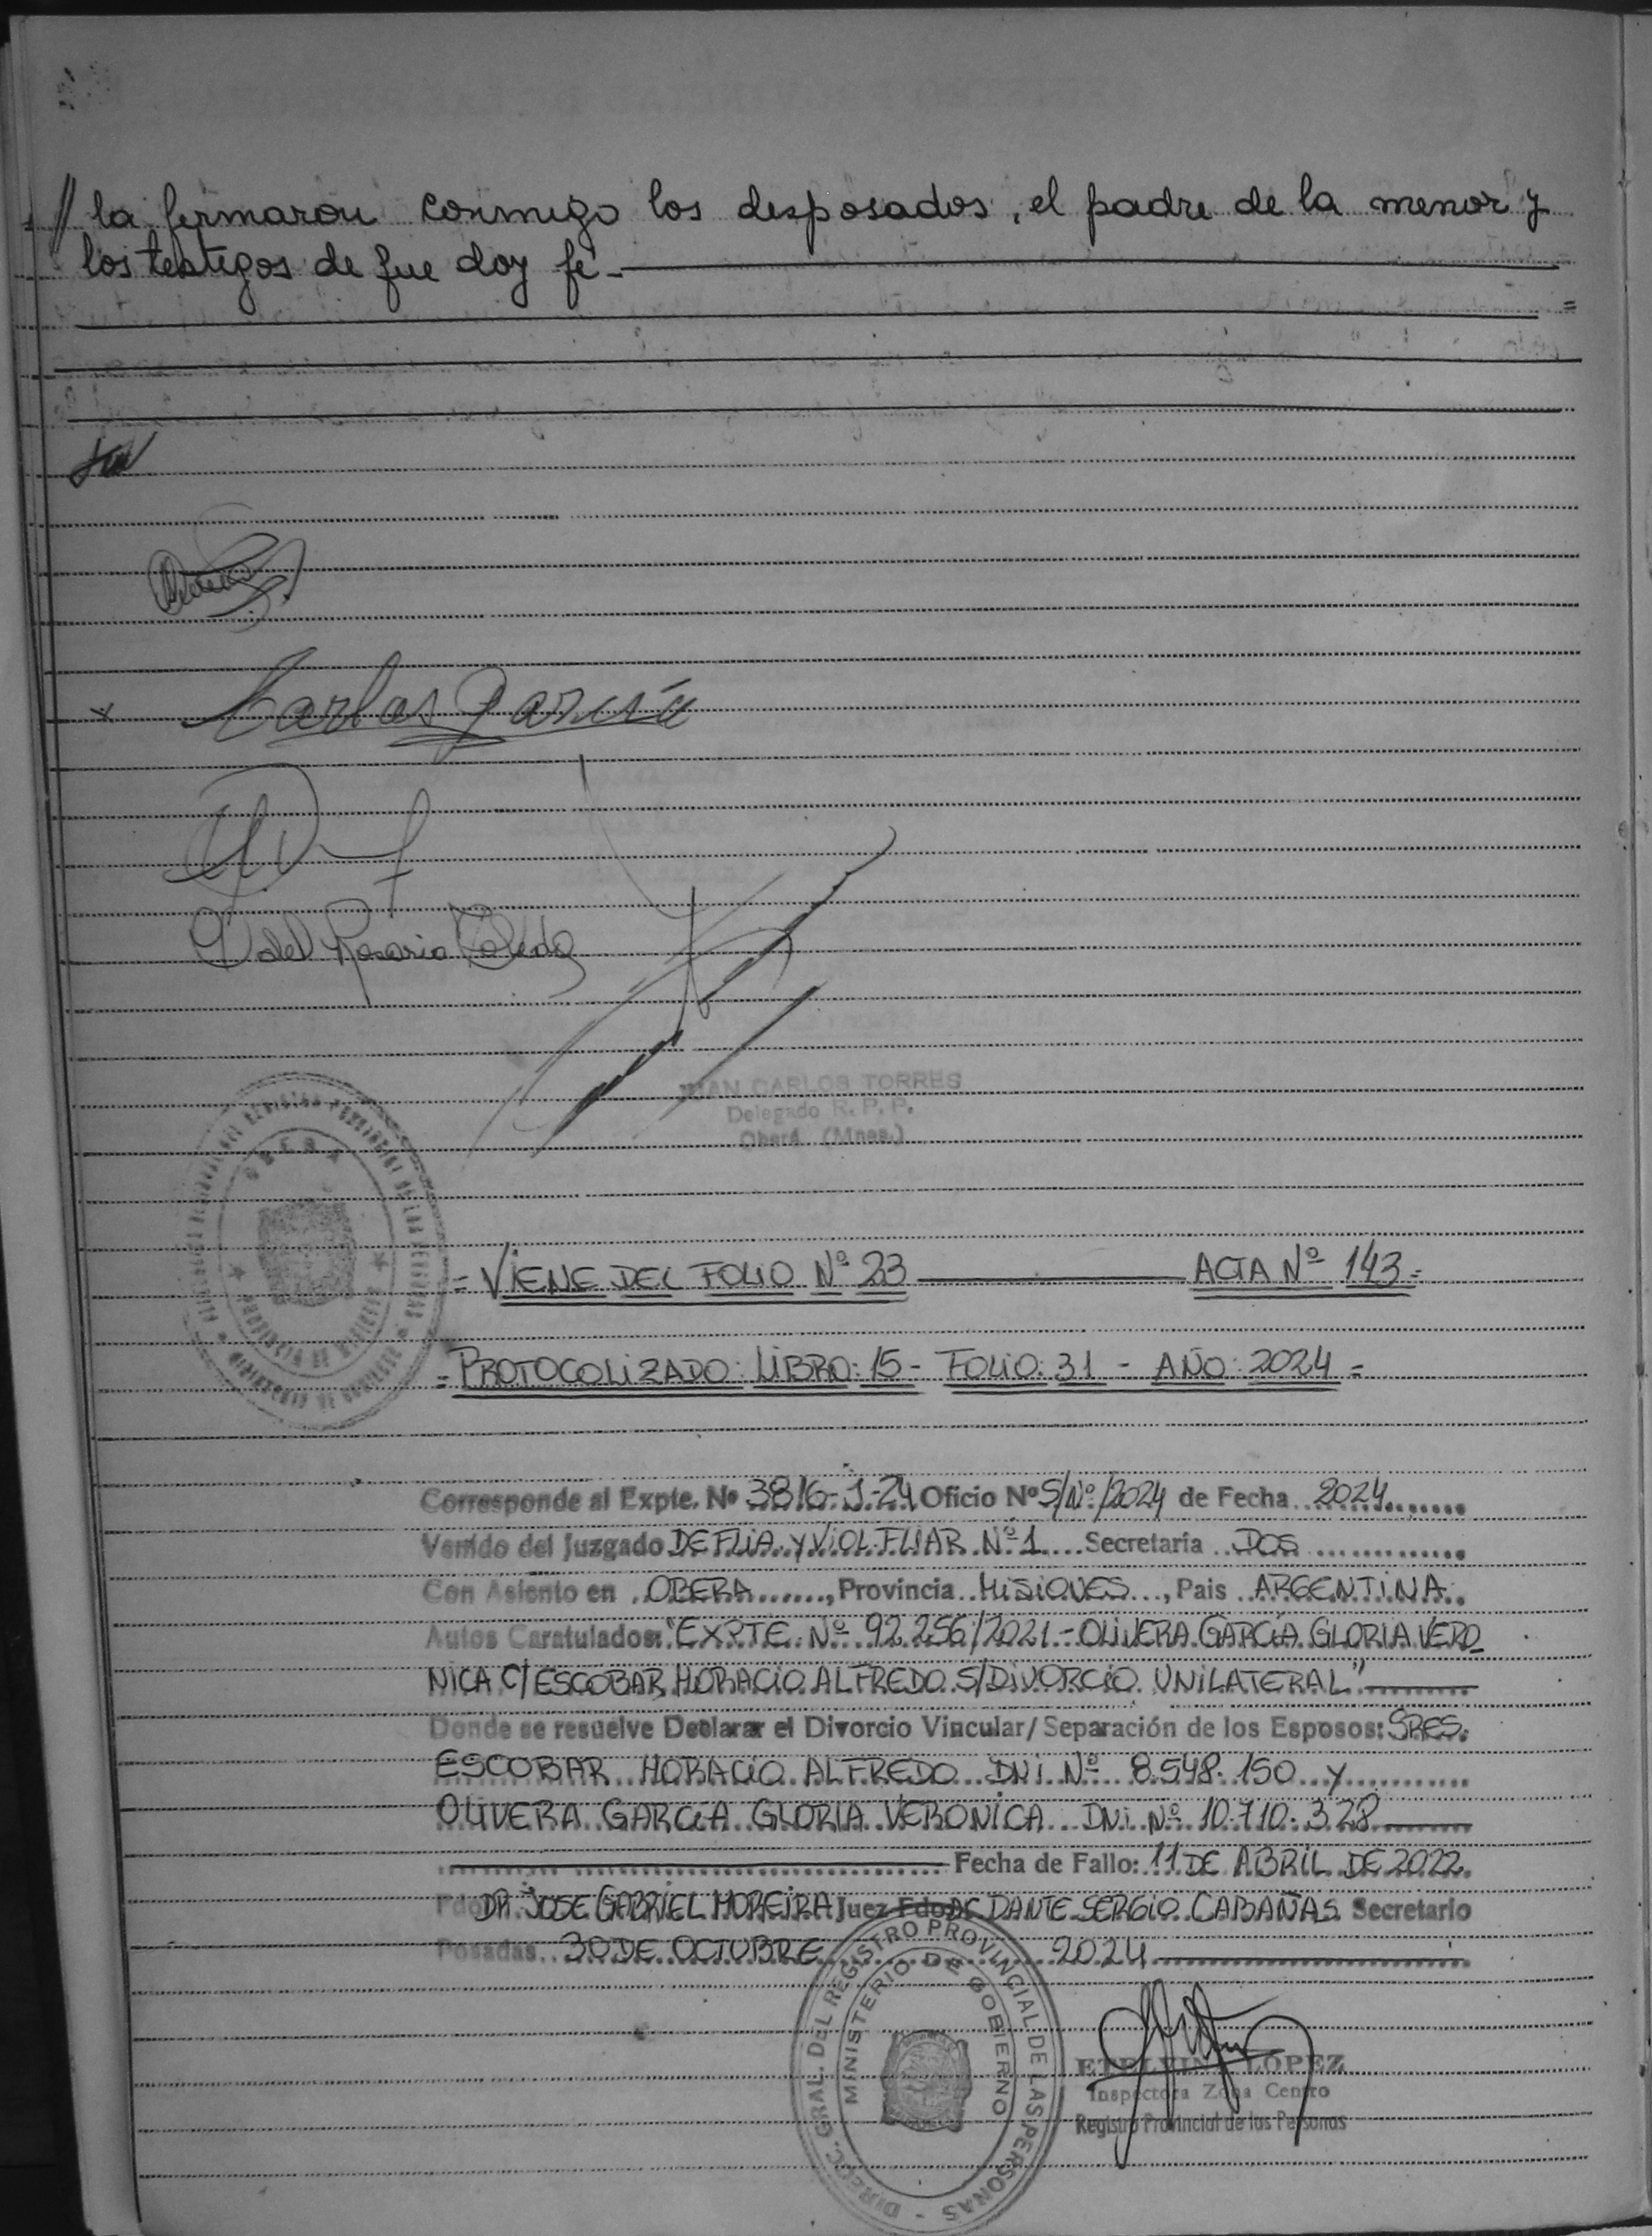 // la firmaron conmigo los desposados, el padre de la menor y
los testigos de que doy fé.-
x Carlos Garcia
V del Rosario Toledo
JUAN CARLOS TORRES
Delegado R. P. P.
Oberá (Mnes.)
OBERA
PROVINCIA DE MISIONES
= VIENE DEL FOLIO Nº 23 ACTA Nº 143 =
= PROTOCOLIZADO: LIBRO: 15 - FOLIO: 31 - AÑO: 2024 =
Corresponde al Expte. Nº 3816-J-24 Oficio Nº S/Nº/2024 de Fecha 2024
Venido del Juzgado DE FLIA. Y VIOL. FLIAR. Nº 1 Secretaría DOS
Con Asiento en OBERA, Provincia MISIONES, Pais ARGENTINA
Autos Caratulados: "EXPTE. Nº 92.256/2021 - OLIVERA GARCIA GLORIA VERO_
NICA C/ ESCOBAR HORACIO ALFREDO S/DIVORCIO UNILATERAL"
Donde se resuelve Declarar el Divorcio Vincular/Separación de los Esposos: SRES.
ESCOBAR HORACIO ALFREDO DNI Nº 8.548.150 Y
OLIVERA GARCIA GLORIA VERONICA DNI Nº 10.710.328
Fecha de Fallo: 11 DE ABRIL DE 2022
Fdo DR. JOSE GABRIEL MOREIRA Juez Fdo DANTE SERGIO CABAÑAS Secretario
Posadas 30 DE OCTUBRE 2024
DIREC. GRAL. DEL REGISTRO PROVINCIAL DE LAS PERSONAS -
MINISTERIO DE GOBIERNO
ETELVINA LÓPEZ
Inspectora Zona Centro
Registro Provincial de las Personas